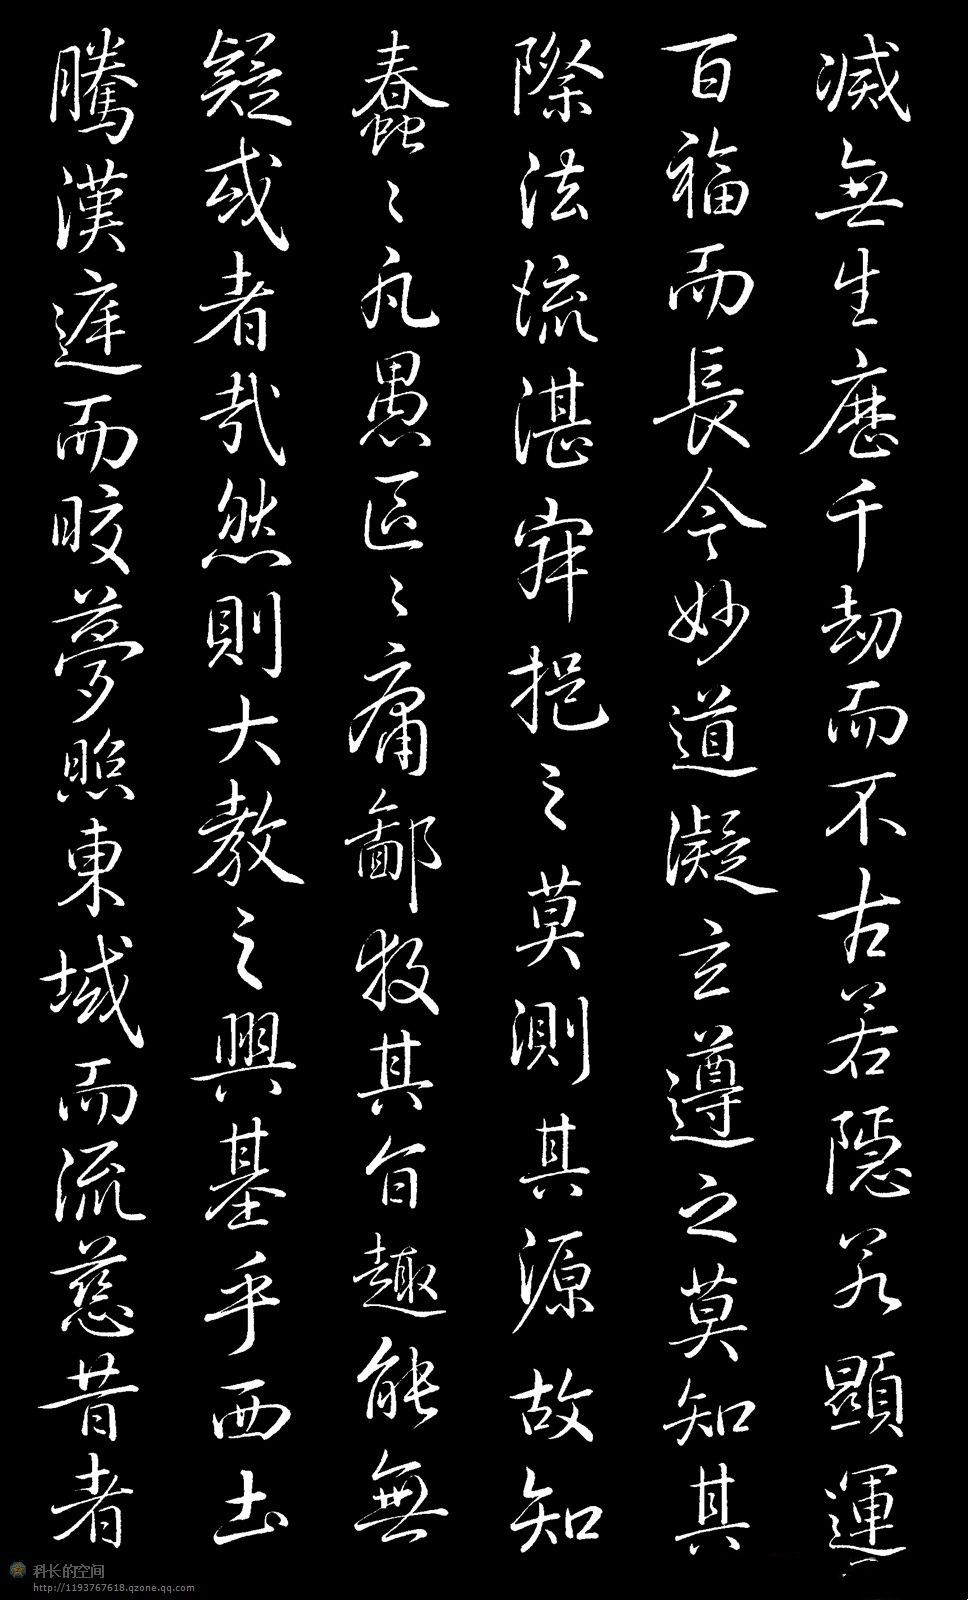 滅無生歷千劫而不古若隱若顯運
百福而長今妙道凝玄遵之莫知其
際法流湛寂挹之莫測其源故知
蠢〻凡愚區〻庸鄙投其旨趣能無
疑或者哉然則大教之興基乎西土
騰漢庭而皎夢照東域而流慈昔者
科长的空间
http://1193767618.qzone.qq.com